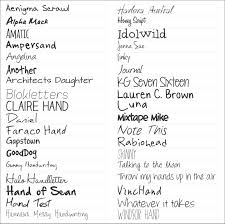 Aenigma Scrawl
Alpha Mack
AMATIC
Ampersand
Angelina
Another
Architects Daughter
Blokletters
CLAIRE HAND
Daniel
Faraco Hand
Gapstown
GoodDog
Gunny Handwriting
Halo Handletter
Hand of Sean
Hand Test
Homemade Messy Handwriting
Honey Script
Idolwild
Jenna Sue
Jinky
Journal
KG Seven Sixteen
Lauren C. Brown
Luna
Mixtape Mike
Note This
Rabiohead
SKINNY
Talking to the Moon
Throw my hands up in the air
VincHand
Whatever it takes
WINDSOR HAND